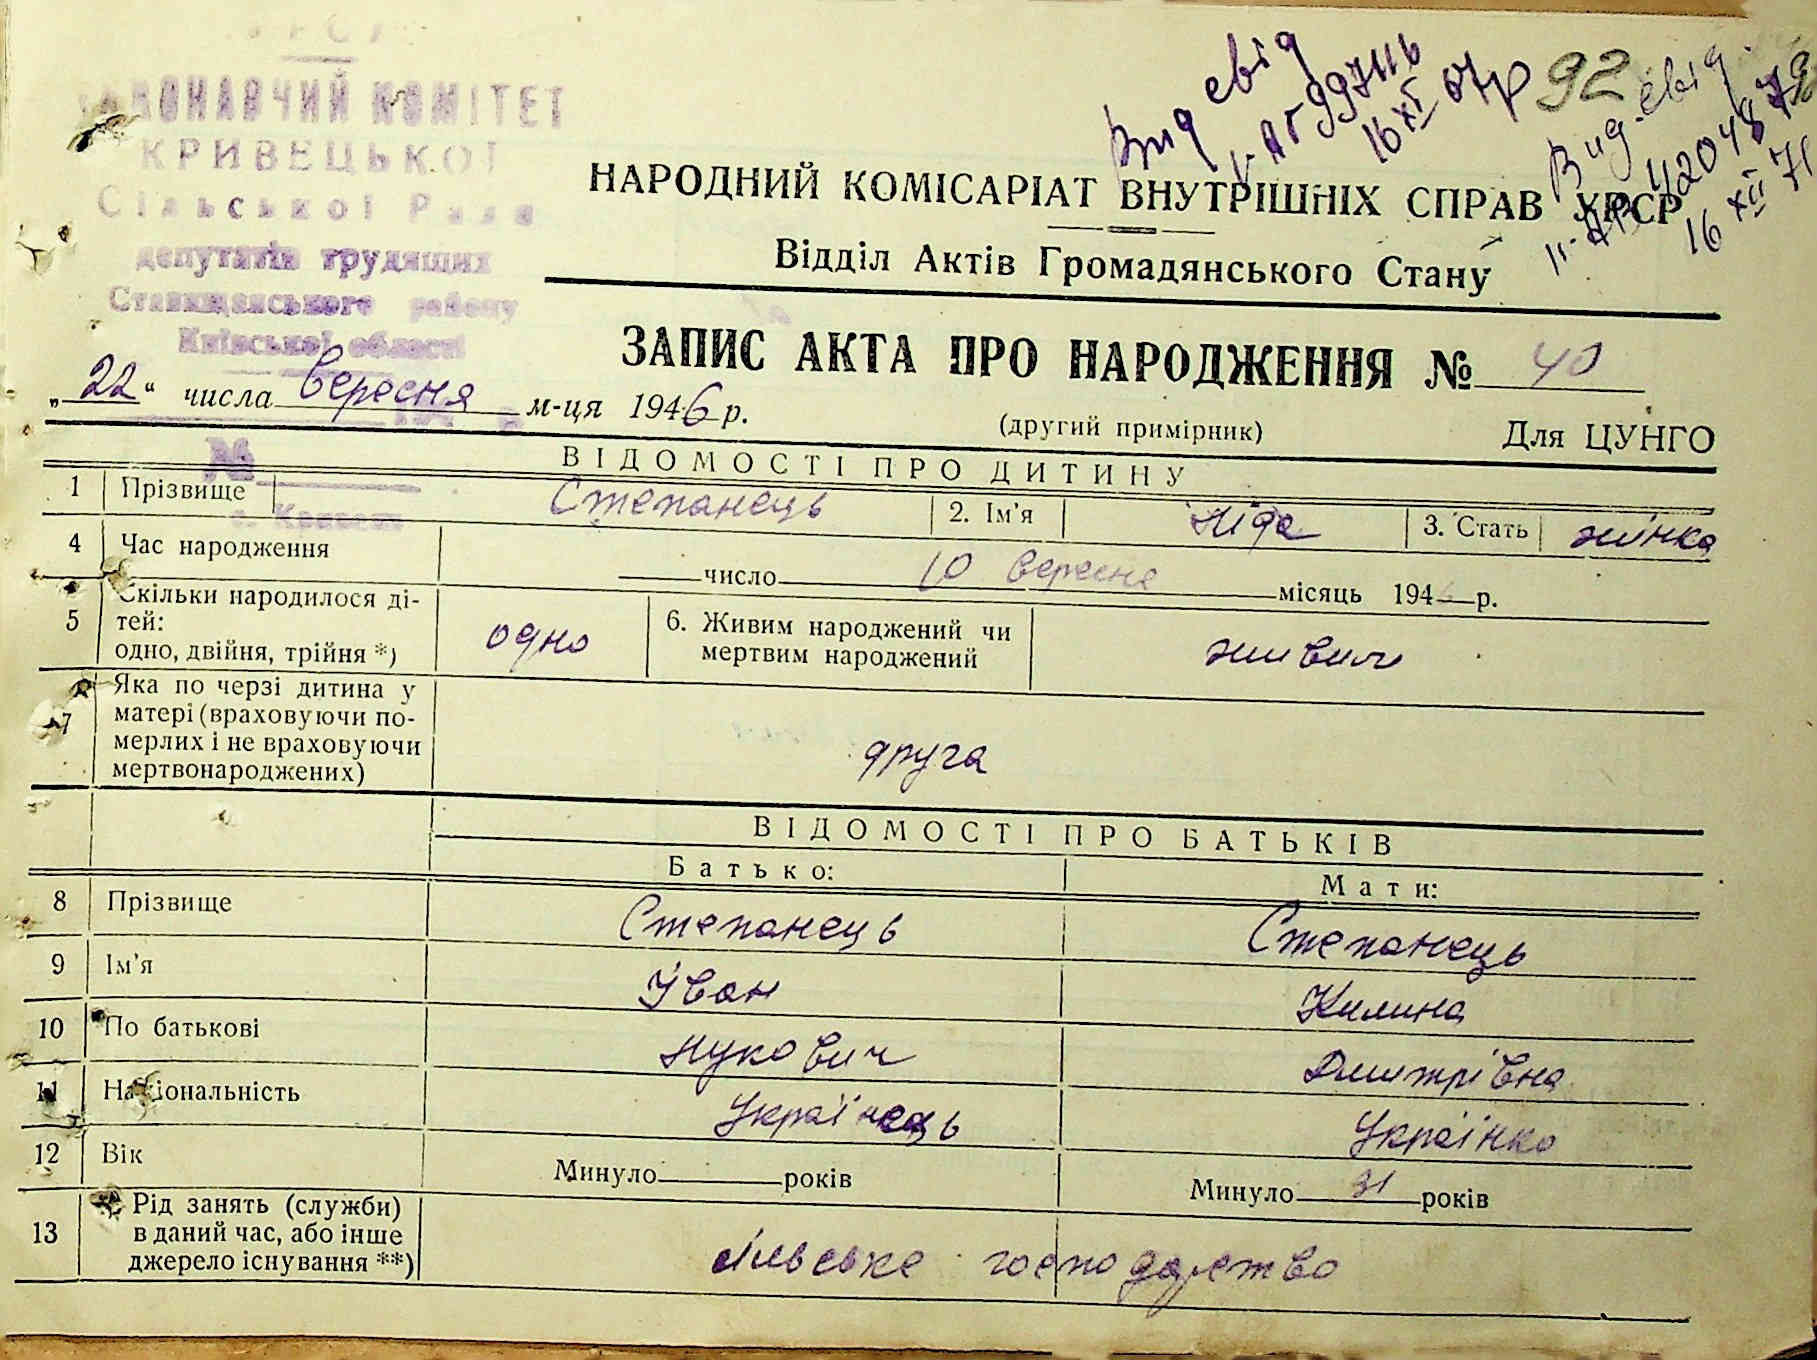 УРСР
ВИКОНАВЧИЙ КОМІТЕТ
КРИВЕЦЬКОЇ
Сільської Ради
депутатів трудящих
Ставищанського району
Київської області
Вид свід
16 XI
92
Вид. свід.
16 XII
НАРОДНИЙ КОМІСАРІАТ ВНУТРІШНІХ СПРАВ УРСР
Відділ Актів Громадянського Стану
ЗАПИС АКТА ПРО НАРОДЖЕННЯ № 40
„22“ числа вересня м-ця 1946 р.
(другий примірник) Для ЦУНГО
№
с. Кривець
ВІДОМОСТІ ПРО ДИТИНУ
1 Прізвище Степанець 2. Ім'я Ліда 3. Стать жінка
4 Час народження число 10 вересня місяць 1946 р.
5 Скільки народилося ді-
тей:
одно, двійня, трійня *) одно
6. Живим народжений чи
мертвим народжений живим
7 Яка по черзі дитина у
матері (враховуючи по-
мерлих і не враховуючи
мертвонароджених) друга
ВІДОМОСТІ ПРО БАТЬКІВ
Батько: Мати:
8 Прізвище Степанець Степанець
9 Ім'я Іван Килина
10 По батькові Лукович Дмитрівна
11 Національність Українець Українка
12 Вік Минуло років Минуло 31 років
13 Рід занять (служби)
в даний час, або інше
джерело існування **) сільське господарство